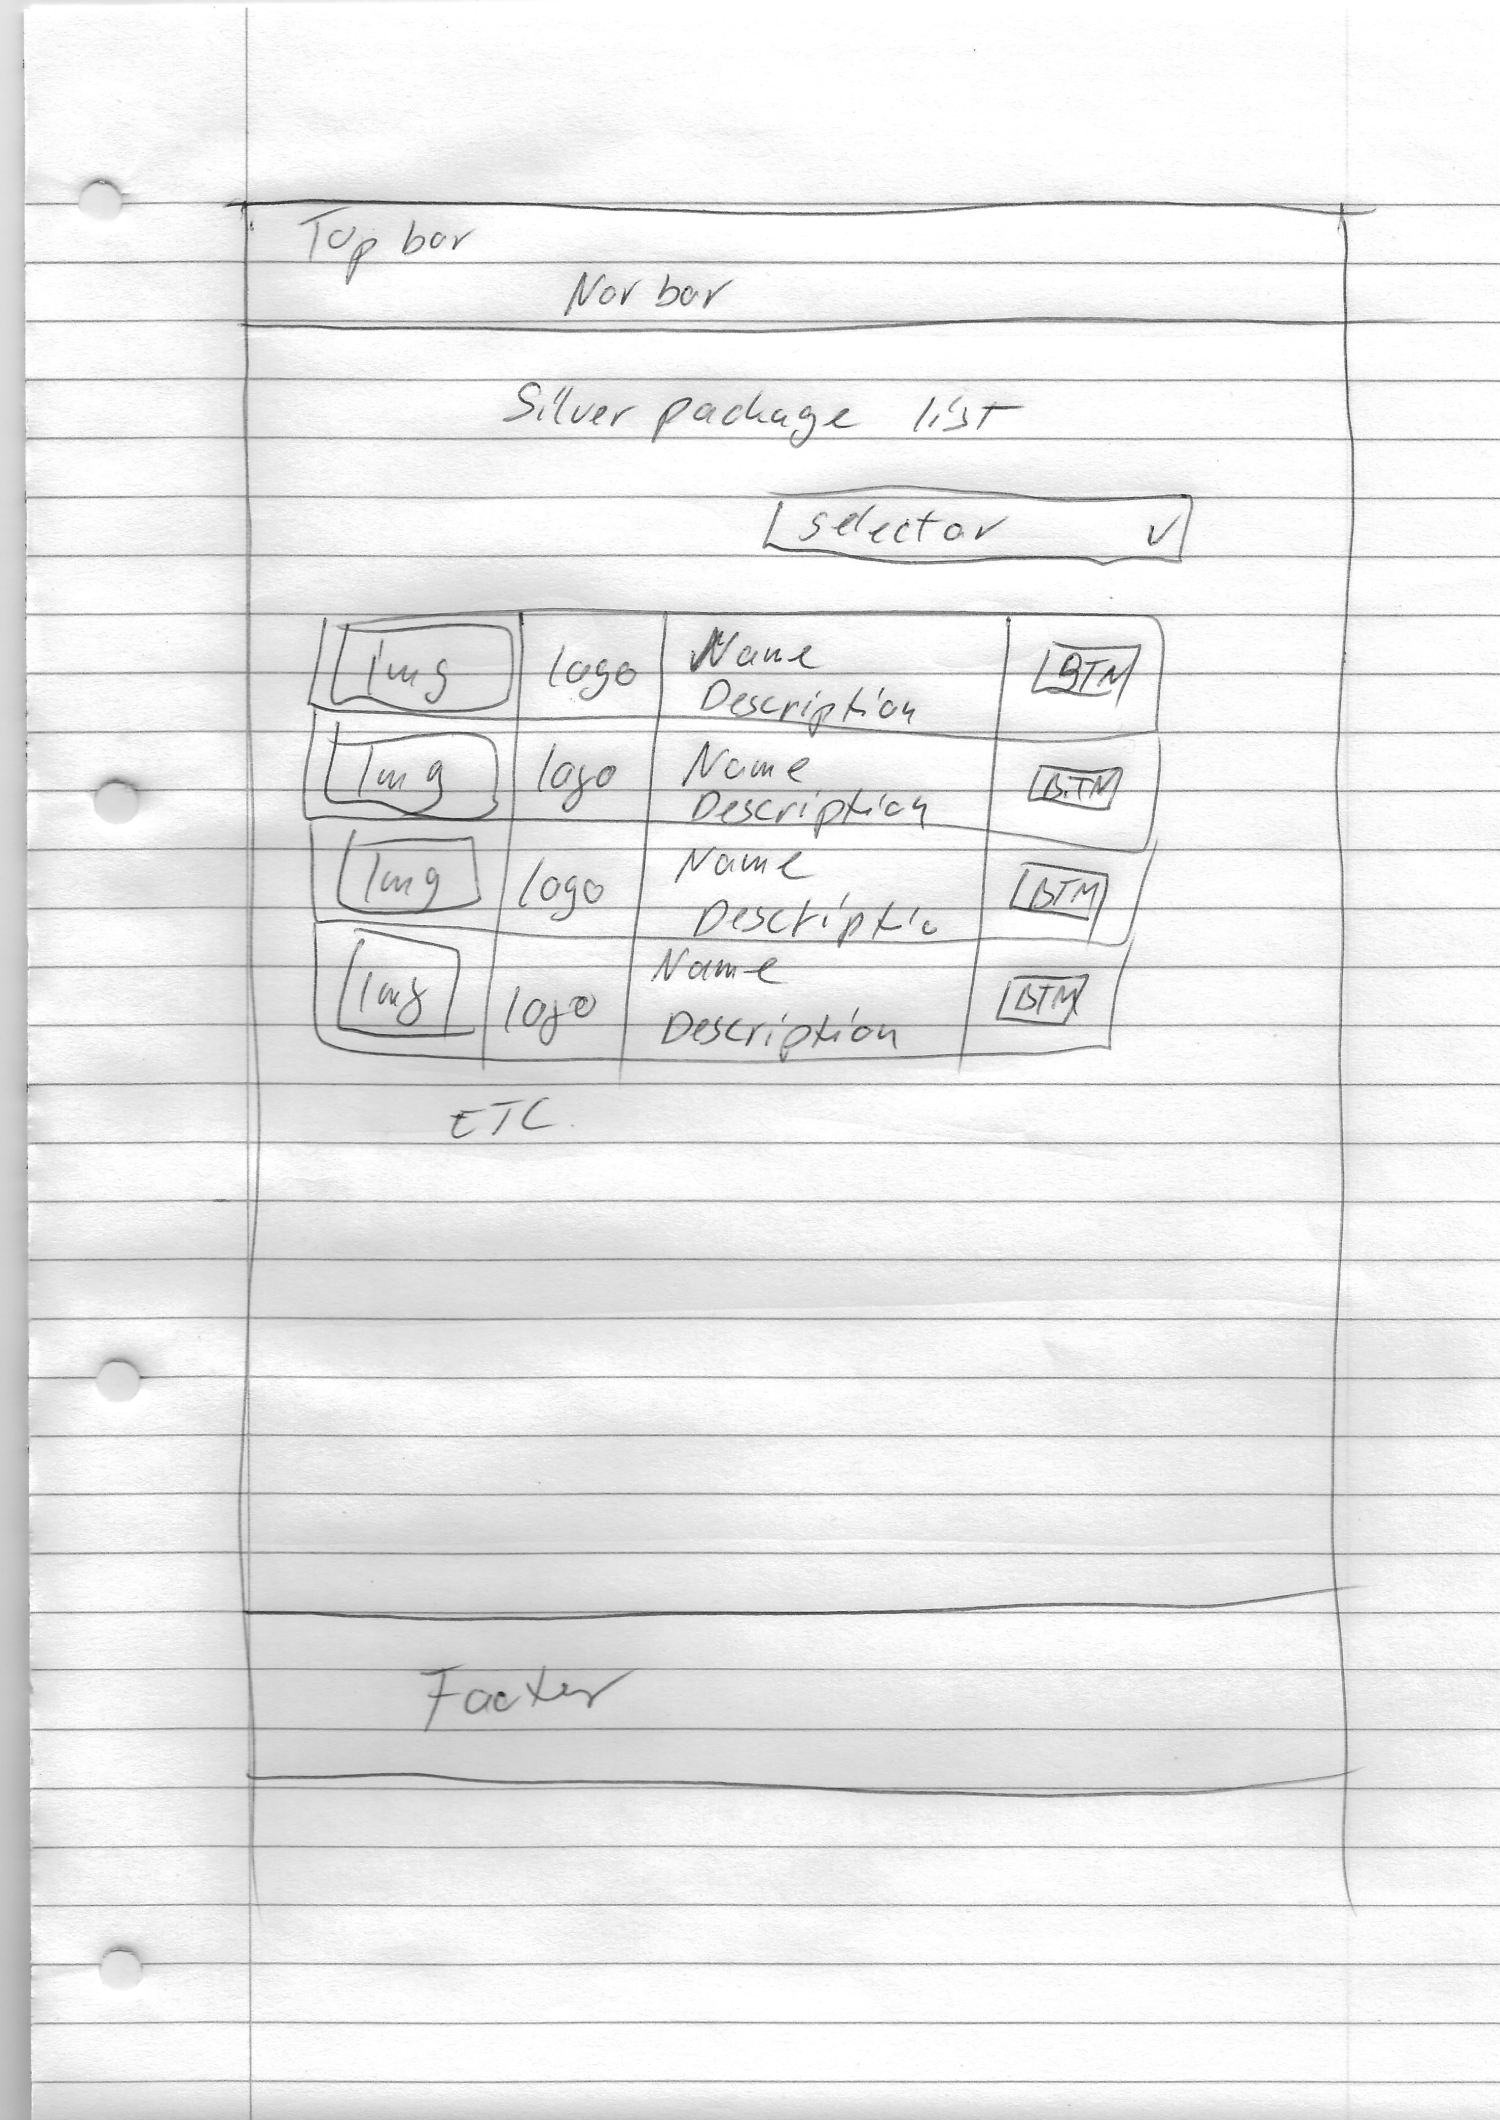 Top bar
Nav bar
Silver package list
selector
Img logo Name BTN
Description
Img logo Name BTN
Description
Img logo Name BTN
Descriptio
Img logo Name BTN
Description
ETC.
Footer